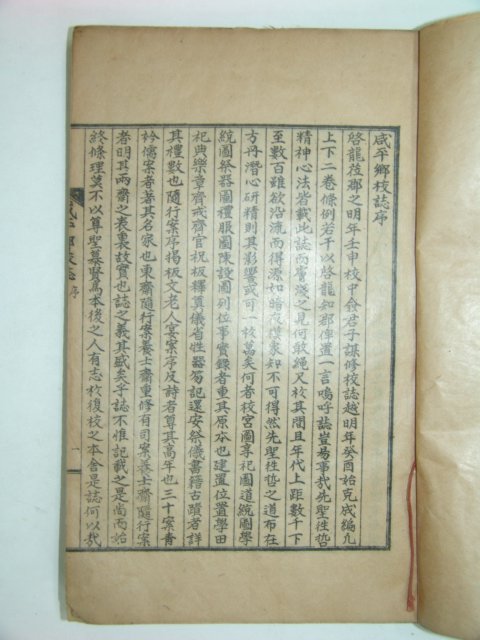 咸平鄕校誌序
啓龍莅郡之明年壬申校中僉君子謀修校誌越明年癸酉始克成編凡
上下二卷條例若干以啓龍知郡俾置一言嗚呼誌豈易事哉先聖往哲
精神心法皆載此誌而賓淺之見何敢繩又校其間且年代上距數千下
至數百雖欲沿流而得源如暗夜樸象知不可得然先聖往哲之道布在
方冊潛心硏精則其影響或可一枚萬矣何者校宮圖享祀圖道統圖學
統圖祭器圖禮服圖陳設圖列位事實錄者重其原本也建置位置學田
祀典樂章齊戒齊官祝板釋奠儀省牲器笏記還安祭儀書籍古蹟者詳
其禮數也隨行案序揭板文老人宴案序及詩者尊其高年也三十案靑
衿儒案者著其名家也東齋隨行案養士齋重修有司案養士齋隨行案
者明其兩齋之表裏故實也誌之義其盛矣乎誌不惟記載之是尙而始
終條理莫不以尊聖慕賢爲本後之人有志校復校之本舍是誌何以哉
咸平鄕校誌 序 一